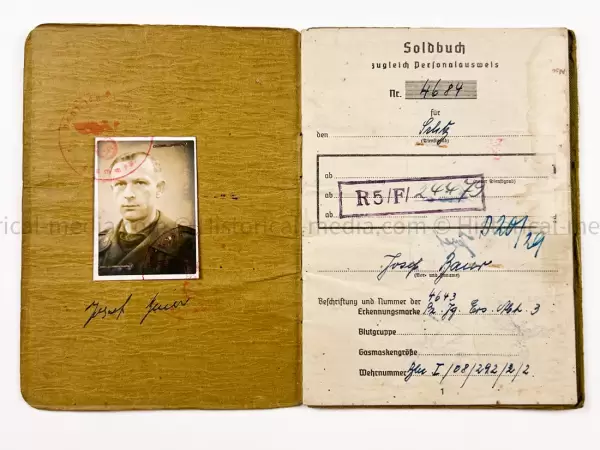 Josef Bauer
Soldbuch
zugleich Personalausweis
Nr. 4684
für
den Schtz
(Dienstgrad)
ab
ab R5/F/24479
ab
D 20/29
Josef Bauer
(Vor- und Zuname)
Beschriftung und Nummer der
Erkennungsmarke 4643 Pz. Jg. Ers. Abt. 3
Blutgruppe
Gasmaskengröße
Wehrnummer I/08/292/2/2
1
Historical-media.com © Historical-media.com